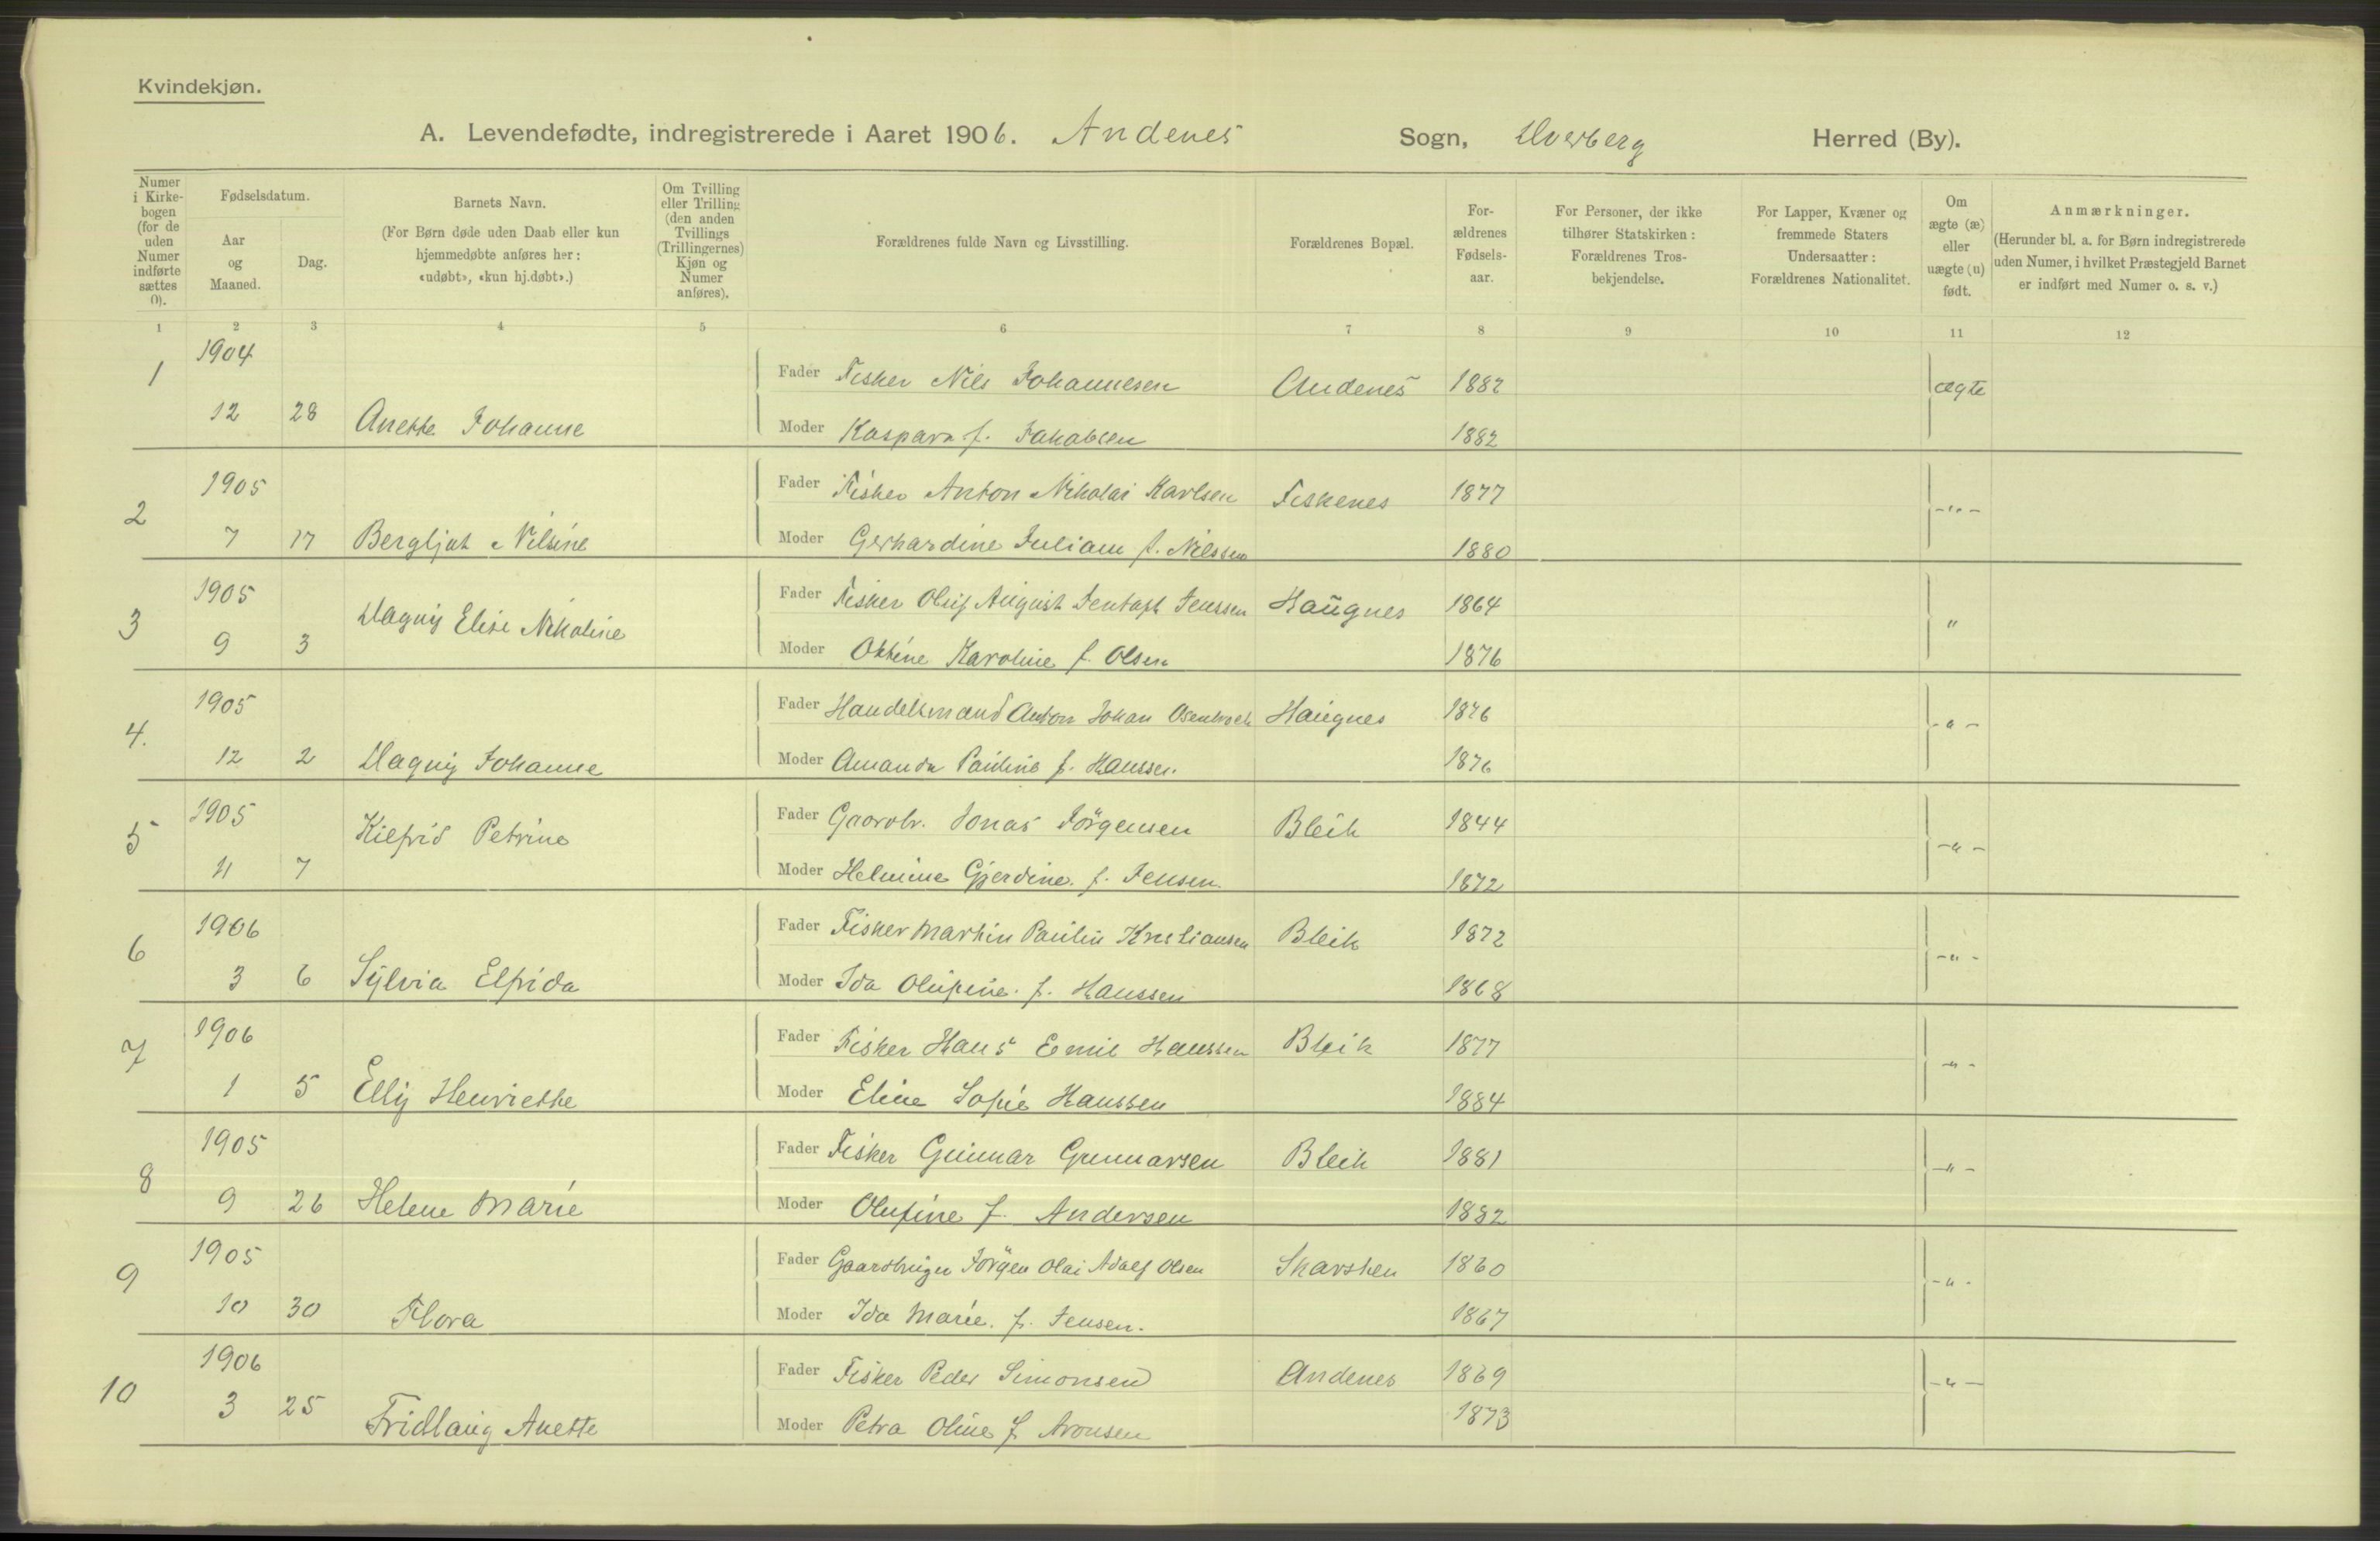 Kvindekjøn.
A. Levendefødte, indregistrerede i Aaret 1906. Andenes Sogn, Dverberg Herred (By).
Numer i Kirkebogen (for de uden Numer indførte sættes 0).
Fødselsdatum.
Aar og Maaned.
Dag.
Barnets Navn.
(For Børn døde uden Daab eller kun hjemmedøbte anføres her: «udøbt», «kun hj.døbt».)
Om Tvilling eller Trilling (den anden Tvillings (Trillingernes) Kjøn og Numer anføres).
Forældrenes fulde Navn og Livsstilling.
Forældrenes Bopæl.
Forældrenes Fødselsaar.
For Personer, der ikke tilhører Statskirken: Forældrenes Trosbekjendelse.
For Lapper, Kvæner og fremmede Staters Undersaatter: Forældrenes Nationalitet.
Om ægte (æ) eller uægte (u) født.
Anmærkninger.
(Herunder bl. a. for Børn indregistrerede uden Numer, i hvilket Præstegjeld Barnet er indført med Numer o. s. v.)
1 2 3 4 5 6 7 8 9 10 11 12
1 1904 Fader Fisker Nils Johannesen Andenes 1882 ægte
12 28 Anette Johanne Moder Kaspara f. Jakobsen 1882
2 1905 Fader Fisker Anton Nikolai Karlsen Fiskenes 1877 -"-
7 17 Bergljot Nilsine Moder Gerhardine Juliane f. Nilssen 1880
3 1905 Dagny Elise Nikoline Fader Fisker Oluf August Jentoft Jenssen Haugnes 1864 "
9 3 Moder Oktine Karoline f. Olsen 1876
4. 1905 Fader Handelsmand Anton Johan Haugnes 1876 -"-
12 2 Dagny Johanne Moder Amanda Pauline f. Hanssen. 1876
5 1905 Kilfrid Petrine Fader Gaardbr. Jonas Jörgensen Bleik 1844 -"-
11 7 Moder Helmine Gjerdine. f. Jensen. 1872
6 1906 Fader Fisker Martin Paulin Kristiansen Bleik 1872 -"-
3 6 Sylvia Elfrida Moder Ida Olufine. f. Hanssen 1868
7 1906 Fader Fisker Hans Emil Hanssen Bleik 1877 -"-
1 5 Elly Henriette Moder Eline Sofie Hanssen 1884
8 1905 Fader Fisker Gunnar Gunnarsen Bleik 1881 -"-
9 26 Helene Marie Moder Olufine f. Andersen 1882
9 1905 Fader Gaardbruger Jörgen Olai Adolf Olsen Skarsten 1860 -"-
10 30 Flora Moder Ida Marie. f. Jensen. 1867
10 1906 Fader Fisker Peder Simonsen Andenes 1869 -"-
3 25 Fridlaug Anette Moder Petra Oline f. Aronsen 1873